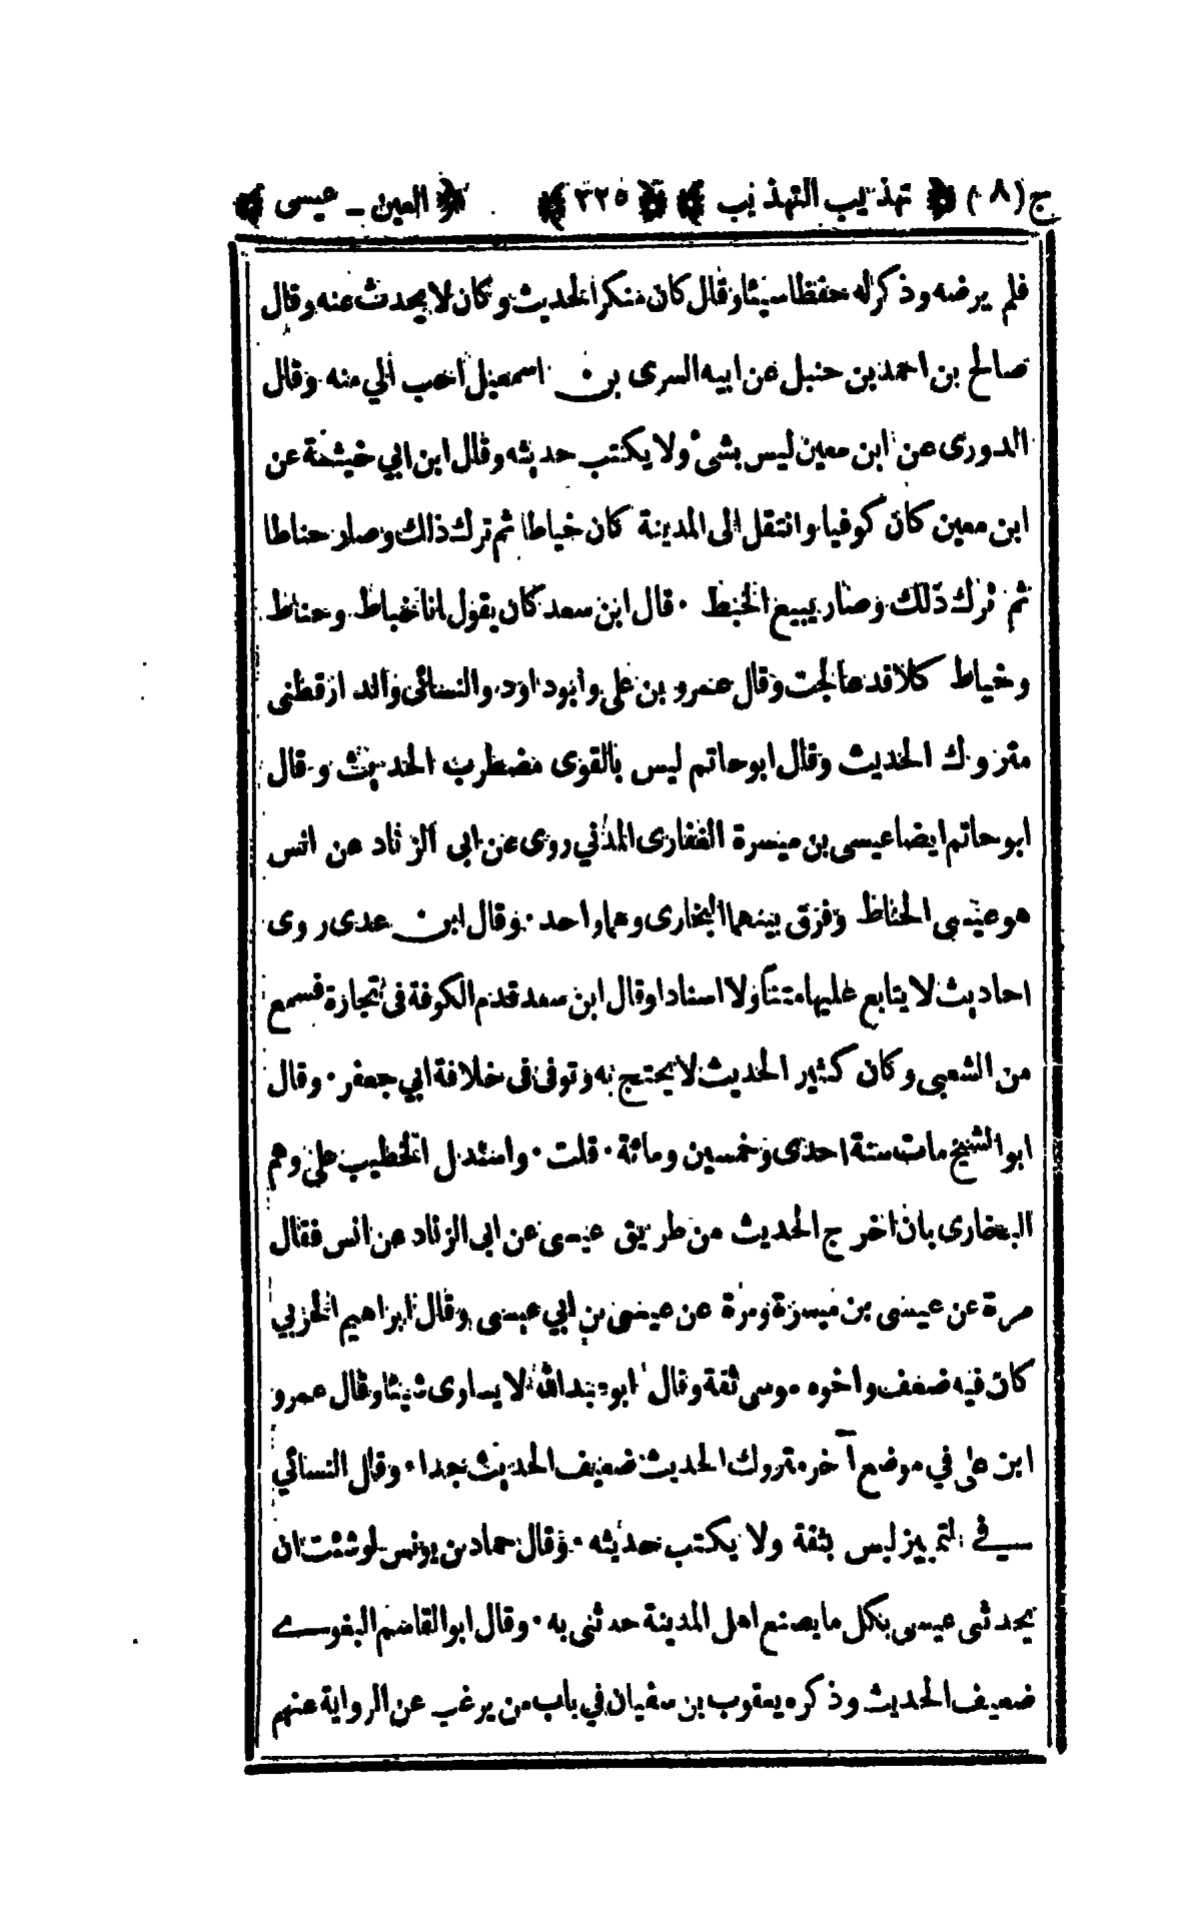 ج (٨) ﴿ تهذيب التهذيب ﴾ ﴿ ٣٢٥ ﴾ ﴿ العين ـ عيسى ﴾
فلم يرضه وذكر له حفظا سيئا وقال كان منكر الحديث وكان لا يحدث عنه وقال
صالح بن احمد بن حنبل عن ابيه السرى بن اسمعيل احب الي منه وقال
الدورى عن ابن معين ليس بشىء ولا يكتب حديثه وقال ابن ابي خيثمة عن
ابن معين كان كوفيا وانتقل الى المدينة كان خياطا ثم ترك ذلك وصار حناطا
ثم ترك ذلك وصار يبيع الخبط ٠ قال ابن سعد كان يقول انا خباط وحناط
وخياط كلا قد عالجت وقال عمرو بن على وابوداود والنسائى والدارقطنى
متروك الحديث وقال ابوحاتم ليس بالقوى مضطرب الحديث وقال
ابوحاتم ايضا عيسى بن ميسرة الغفارى المدني روى عن ابى الزناد عن انس
هو عيسى الحناط وفرق بينهما البخارى وهما واحد ٠ وقال ابن عدى روى
احاديث لا يتابع عليها متنا ولا اسنادا وقال ابن سعد قدم الكوفة فى تجارة فسمع
من الشعبى وكان كثير الحديث لا يحتج به وتوفى فى خلافة ابي جعفر ٠ وقال
ابو الشيخ مات سنة احدى وخمسين ومائة ٠ قلت ٠ واستدل الخطيب على وهم
البخارى بان اخرج الحديث من طريق عيسى عن ابى الزناد عن انس فقال
مرة عن عيسى بن ميسرة ومرة عن عيسى بن ابي عيسى وقال ابراهيم الحربي
كان فيه ضعف واخوه موسى ثقة وقال ابوعبدالله لا يساوى شيئا وقال عمرو
ابن على في موضع آخر متروك الحديث ضعيف الحديث جدا ٠ وقال النسائي
فى التمييز ليس بثقة ولا يكتب حديثه ٠ وقال حماد بن يونس لو شئت ان
يحدثنى عيسى بكل ما يصنع اهل المدينة حدثنى به ٠ وقال ابوالقاسم البغوى
ضعيف الحديث وذكره يعقوب بن سفيان في باب من يرغب عن الرواية عنهم